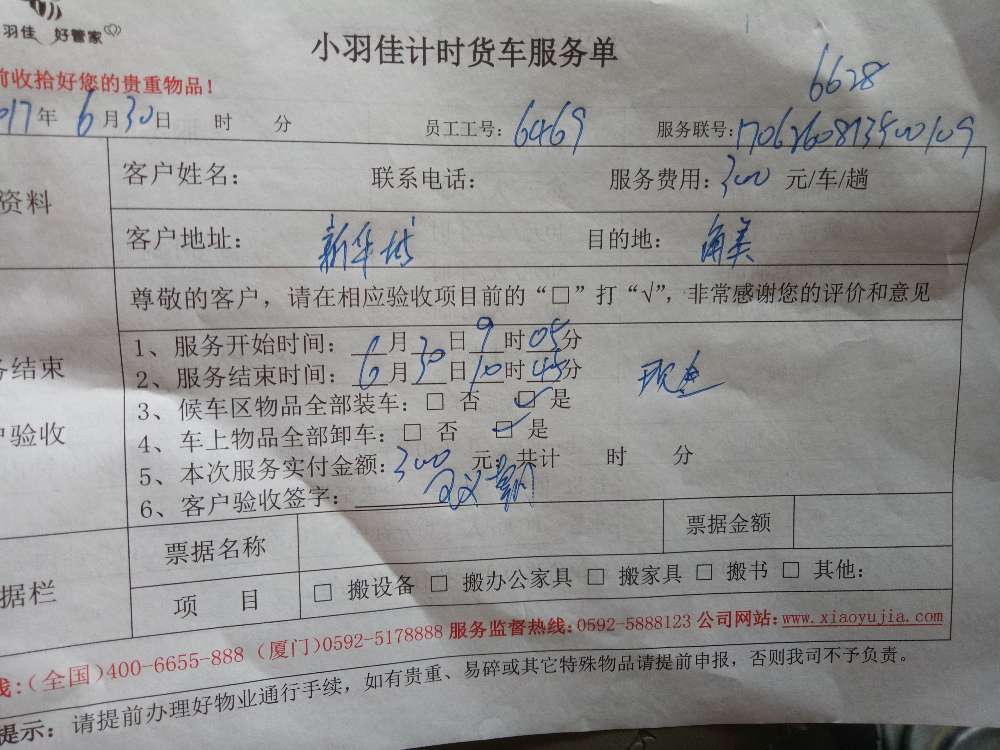 羽佳 好管家
小羽佳计时货车服务单
前收拾好您的贵重物品!
6628
017年 6月30日 时 分 员工工号: 6469 服务联号:
资料 客户姓名: 联系电话: 服务费用: 300 元/车/趟
客户地址: 新华城 目的地: 角美
尊敬的客户，请在相应验收项目前的“□”打“√”，非常感谢您的评价和意见
务结束
户验收
1、服务开始时间: 6月30日9时05分
2、服务结束时间: 6月30日10时45分 现金
3、候车区物品全部装车: □ 否 ☑ 是
4、车上物品全部卸车: □ 否 ☑ 是
5、本次服务实付金额: 300 元，共计 时 分
6、客户验收签字:
据栏 票据名称 票据金额
项 目 □ 搬设备 □ 搬办公家具 □ 搬家具 □ 搬书 □ 其他:
线:(全国)400-6655-888 (厦门)0592-5178888 服务监督热线:0592-5888123 公司网站:www.xiaoyujia.com
提示: 请提前办理好物业通行手续，如有贵重、易碎或其它特殊物品请提前申报，否则我司不予负责。